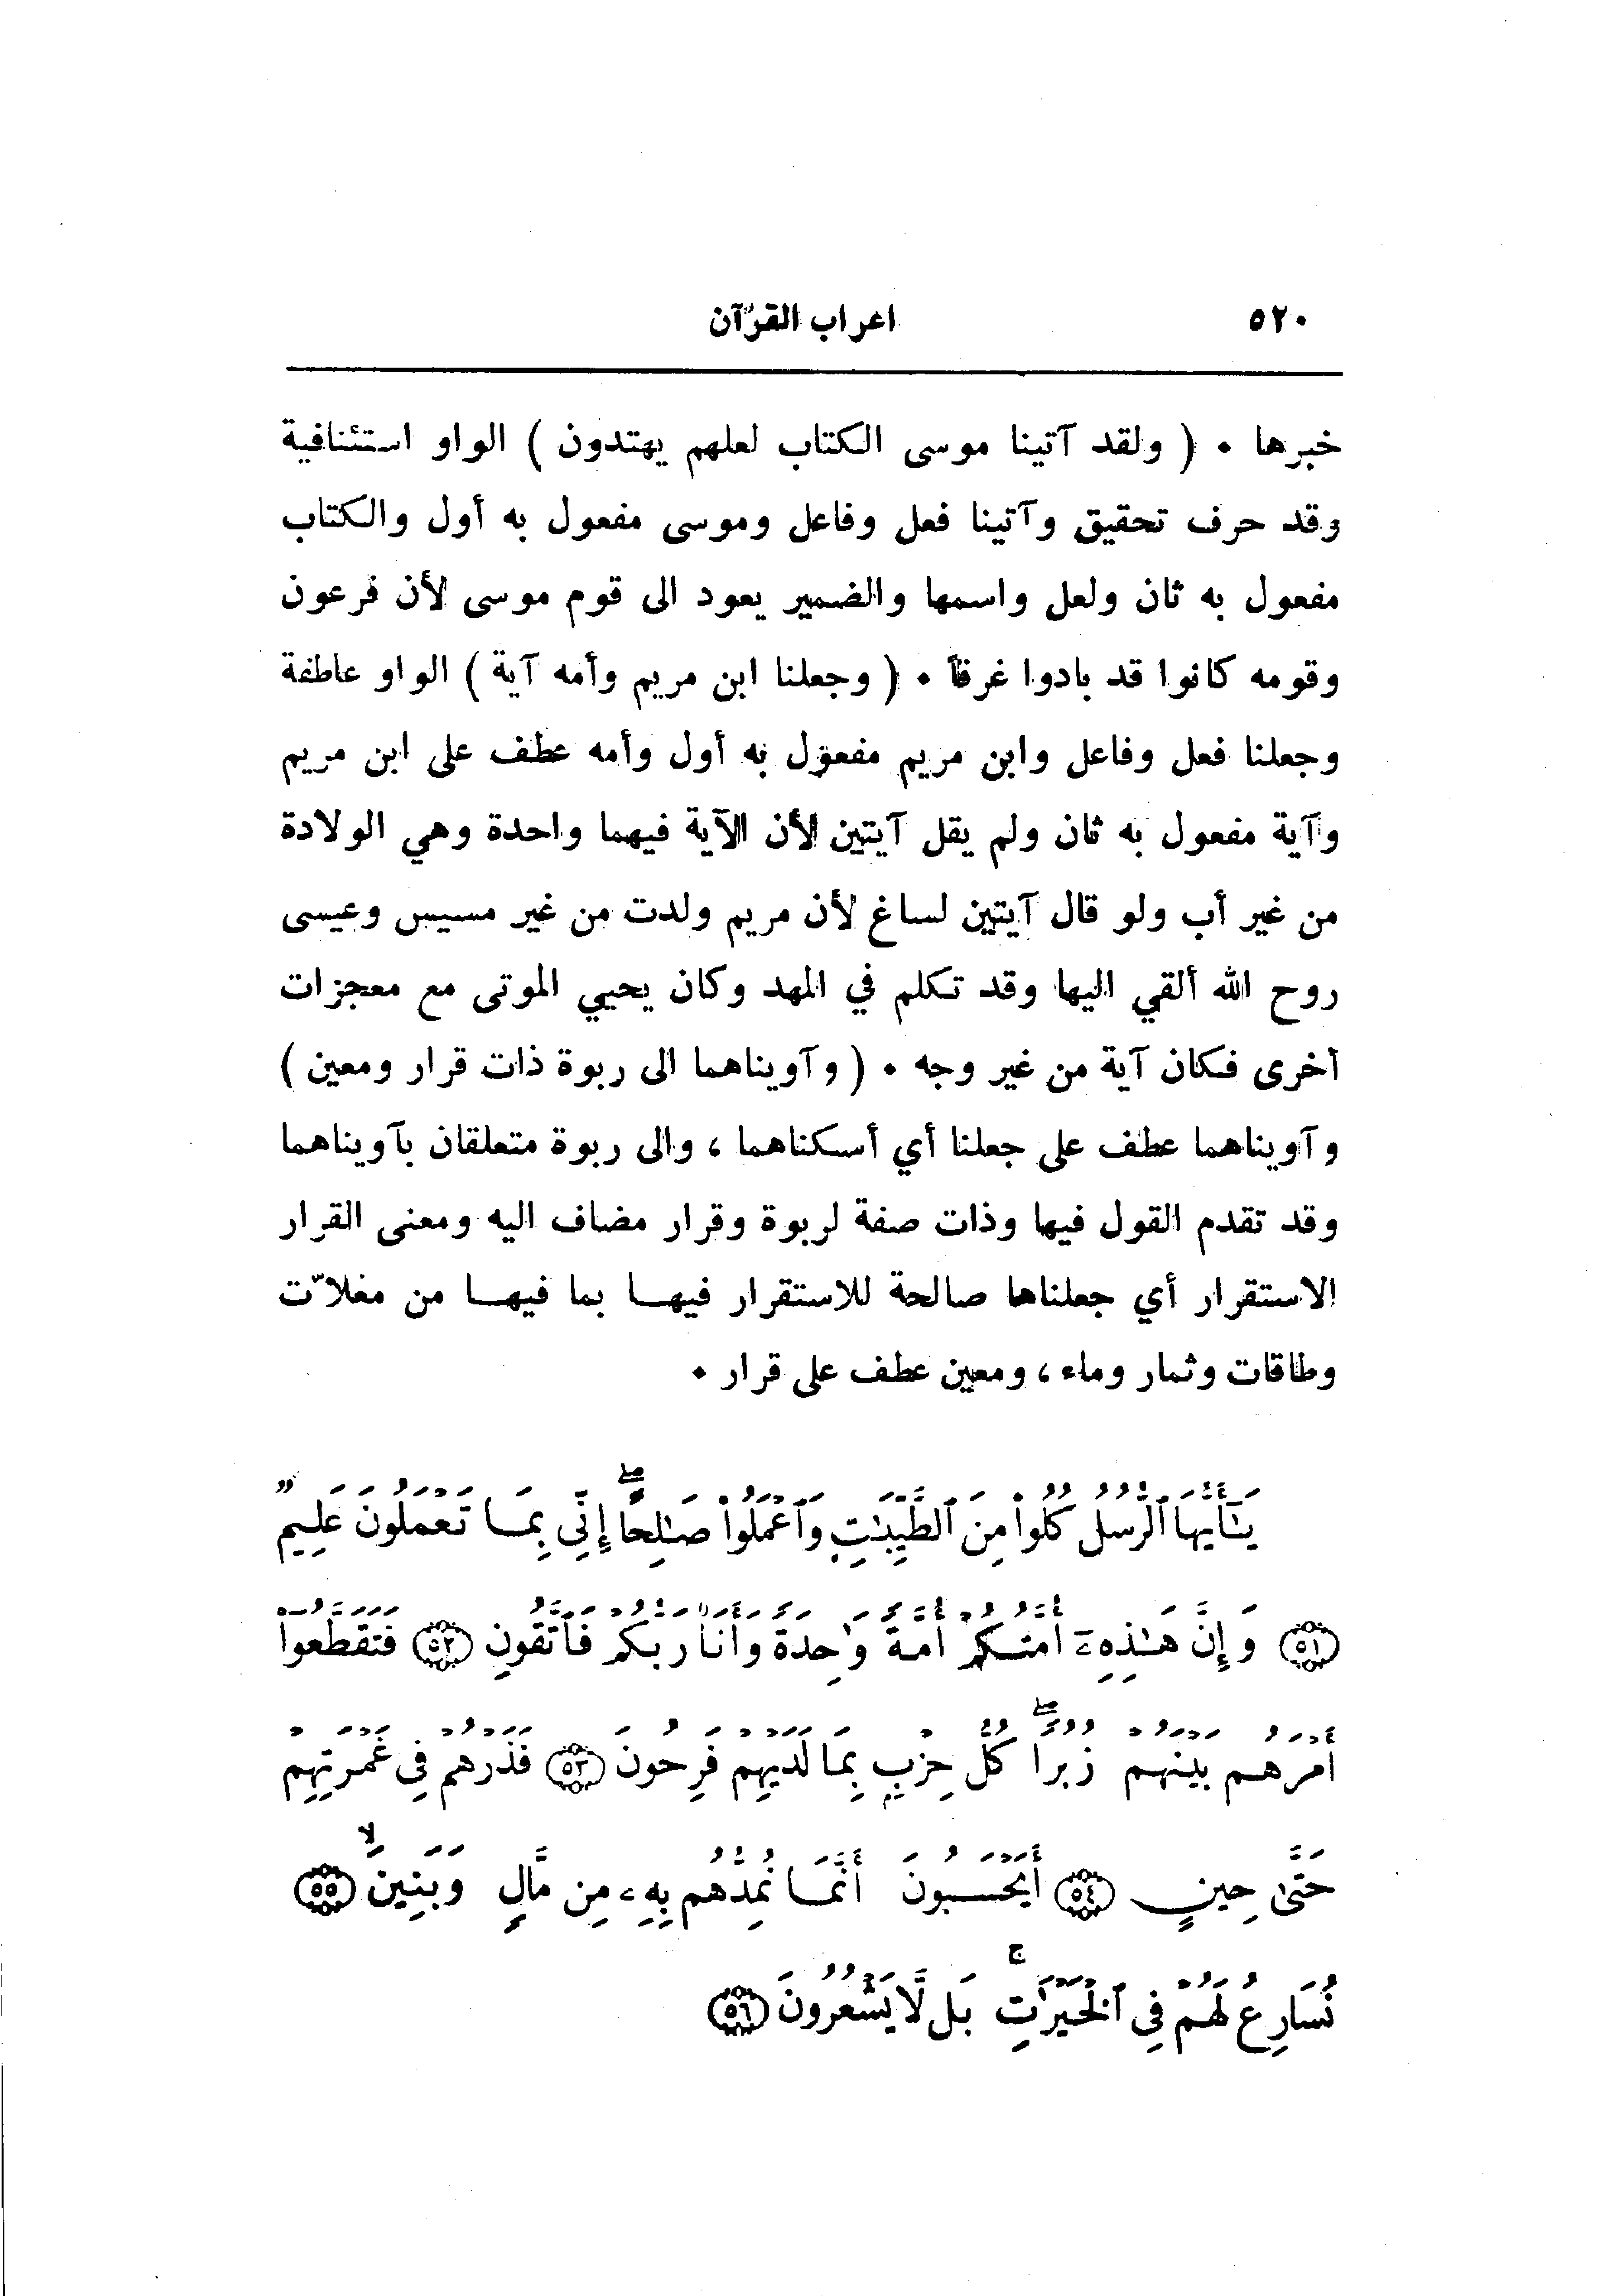 ٥٢٠ اعراب القرآن
خبرها ٠ ( ولقد آتينا موسى الكتاب لعلهم يهتدون ) الواو استئنافية
وقد حرف تحقيق وآتينا فعل وفاعل وموسى مفعول به أول والكتاب
مفعول به ثان ولعل واسمها والضمير يعود الى قوم موسى لأن فرعون
وقومه كانوا قد بادوا غرقاً ٠ ( وجعلنا ابن مريم وأمه آية ) الواو عاطفة
وجعلنا فعل وفاعل وابن مريم مفعول به أول وأمه عطف على ابن مريم
وآية مفعول به ثان ولم يقل آيتين لأن الآية فيهما واحدة وهي الولادة
من غير أب ولو قال آيتين لساغ لأن مريم ولدت من غير مسيس وعيسى
روح الله ألقي اليها وقد تكلم في المهد وكان يحيي الموتى مع معجزات
أخرى فكان آية من غير وجه ٠ ( وآويناهما الى ربوة ذات قرار ومعين )
وآويناهما عطف على جعلنا أي أسكناهما ، والى ربوة متعلقان بآويناهما
وقد تقدم القول فيها وذات صفة لربوة وقرار مضاف اليه ومعنى القرار
الاستقرار أي جعلناها صالحة للاستقرار فيهــا بما فيهــا من مغلاّت
وطاقات وثمار وماء ، ومعين عطف على قرار ٠
يَـٰٓأَيُّهَا ٱلرُّسُلُ كُلُوا۟ مِنَ ٱلطَّيِّبَـٰتِ وَٱعْمَلُوا۟ صَـٰلِحًا ۖ إِنِّى بِمَا تَعْمَلُونَ عَلِيمٌ
﴿٥١﴾ وَإِنَّ هَـٰذِهِۦٓ أُمَّتُكُمْ أُمَّةً وَٰحِدَةً وَأَنَا۠ رَبُّكُمْ فَٱتَّقُونِ ﴿٥٢﴾ فَتَقَطَّعُوٓا۟
أَمْرَهُم بَيْنَهُمْ زُبُرًا ۖ كُلُّ حِزْبٍۭ بِمَا لَدَيْهِمْ فَرِحُونَ ﴿٥٣﴾ فَذَرْهُمْ فِى غَمْرَتِهِمْ
حَتَّىٰ حِينٍ ﴿٥٤﴾ أَيَحْسَبُونَ أَنَّمَا نُمِدُّهُم بِهِۦ مِن مَّالٍ وَبَنِينَ ۙ ﴿٥٥﴾
نُسَارِعُ لَهُمْ فِى ٱلْخَيْرَٰتِ ۚ بَل لَّا يَشْعُرُونَ ﴿٥٦﴾